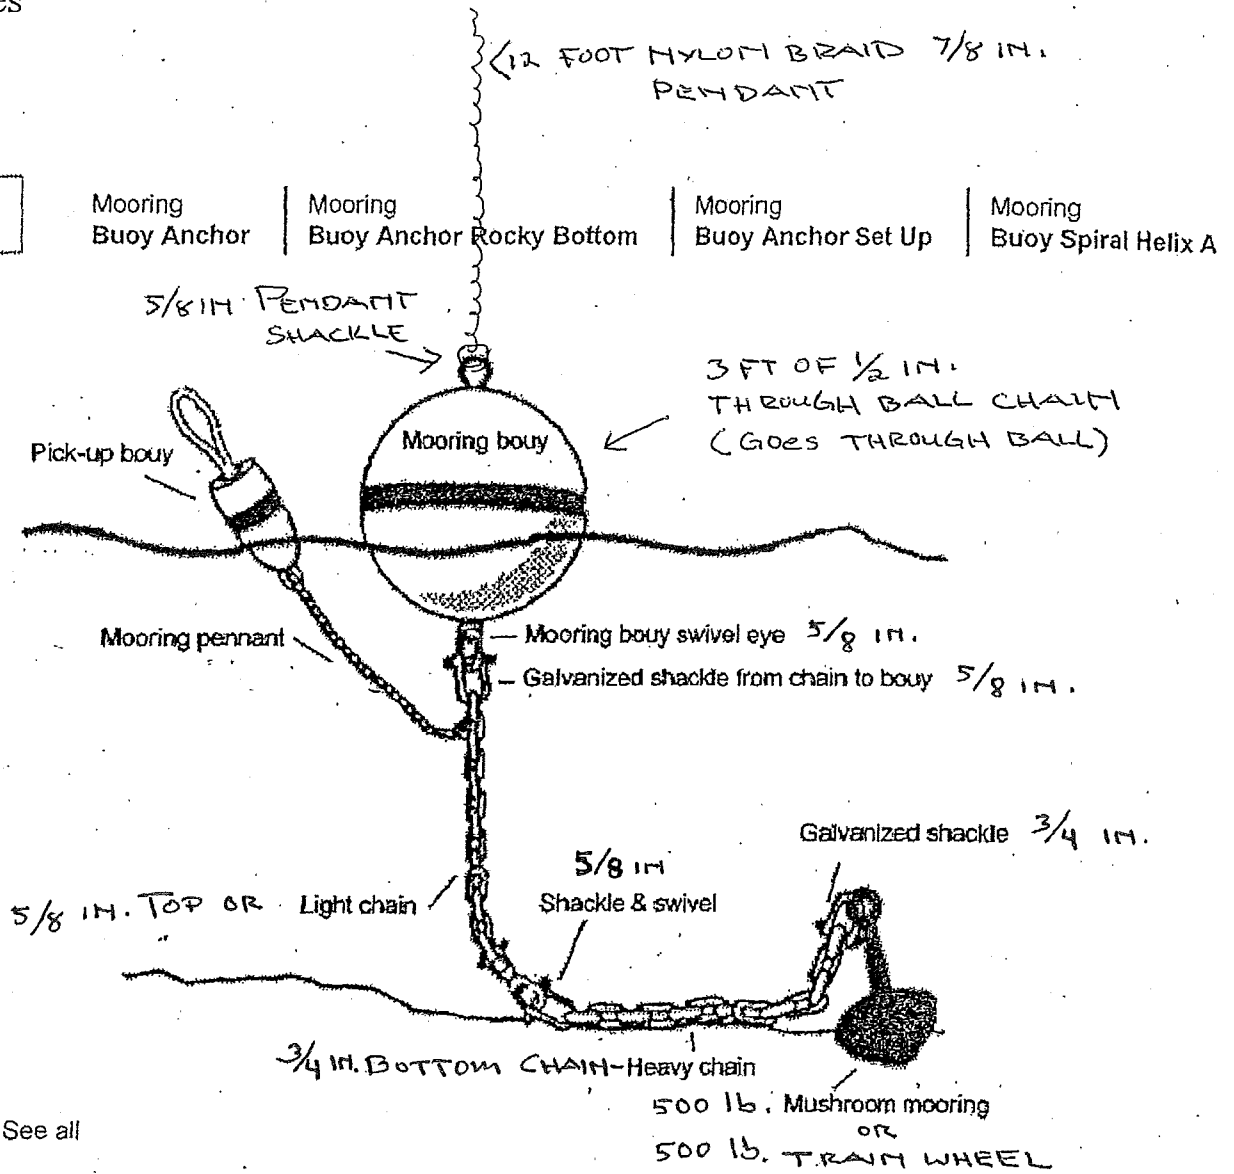 es
<12 FOOT NYLON BRAID 7/8 IN.
PENDANT
Mooring
Buoy Anchor
Mooring
Buoy Anchor Rocky Bottom
Mooring
Buoy Anchor Set Up
Mooring
Buoy Spiral Helix A
5/8 IN PENDANT
SHACKLE
3 FT OF 1/2 IN.
THROUGH BALL CHAIN
(GOES THROUGH BALL)
Mooring bouy
Pick-up bouy
Mooring pennant
Mooring bouy swivel eye 5/8 IN.
Galvanized shackle from chain to bouy 5/8 IN.
Galvanized shackle 3/4 IN.
5/8 IN
Shackle & swivel
5/8 IN. TOP OR Light chain
3/4 IN. BOTTOM CHAIN-Heavy chain
500 lb. Mushroom mooring
OR
500 lb. TRAIN WHEEL
See all